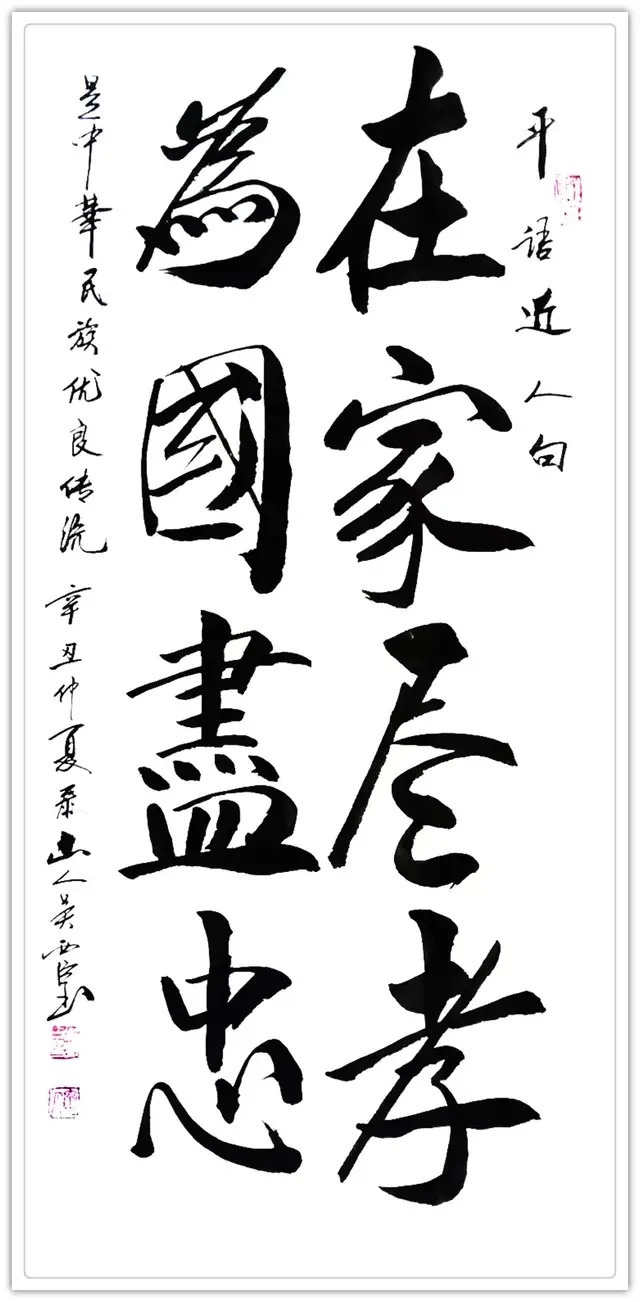 平语近人句
在家尽孝
為國盡忠
是中華民族优良传统 辛丑仲夏泰山人吴